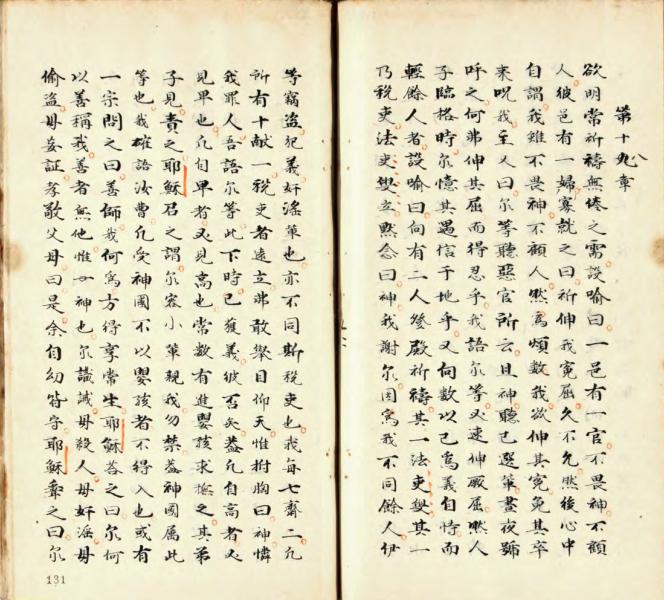 第十九章
八
欲明常祈禱無倦之需設喻曰一邑有一官不畏神不顧
人彼邑有一婦寡就之曰祈伸我冤屈久不允然後心中
自謂我雖不畏神不顧人然為煩數我欲伸其冤免其卒
來呪我主又曰尔等聽惡官所云且神聽已選輩晝夜號
呼之何弗伸其屈而得忍乎我語尔等又速伸厥屈然人
子臨格時尔憶其遇信于地乎又向數以己為義自恃而
輕餘人者設喻曰向有二人登殿祈禱其一法吏㸑其一
乃稅吏法吏㸑立默念曰神我謝尔因為我不同餘人伊
等竊盜犯義奸滛輩也亦不同斯稅吏也我每七齋二凡
所有十献一稅吏者遠立弗敢舉目仰天惟拊胸曰神憐
我罪人吾語尔等此下時已獲義彼否矣葢凡自高者必
見卑也凡自卑者必見高也常數有進嬰孩求撫之其弟
子見責之耶穌召之謂尔容小輩親我勿禁葢神國属此
等也我確語汝曹凡受神國不以嬰孩者不得入也或有
一宗問之曰善師我何為方得享常生耶穌荅之曰尔何
以善稱我善者無他惟一神也尔識誡毋殺人毋奸滛毋
偷盜毋妄証孝敬父母曰是余自幼皆守耶穌聽之曰尔
131